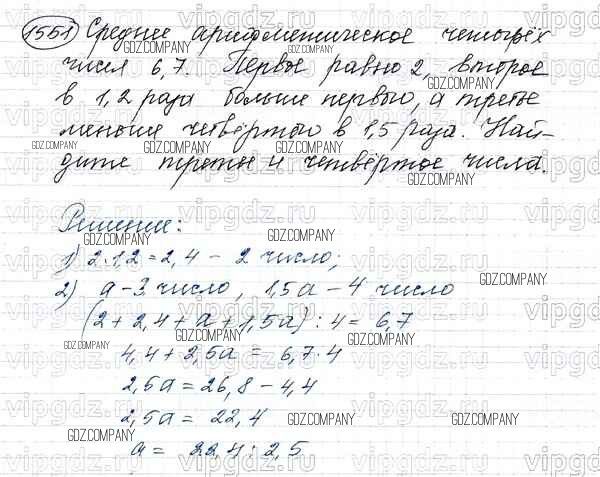 1551 Среднее арифметическое четырёх
чисел 6,7. Первое равно 2, второе
в 1,2 раза больше первого, а третье
меньше четвёртого в 1,5 раза. Най-
дите третье и четвёртое числа.
Решение:
1) 2·1,2=2,4 – 2 число;
2) а – 3 число, 1,5а – 4 число
(2 + 2,4 + а + 1,5а) : 4 = 6,7
4,4 + 2,5а = 6,7·4
2,5а = 26,8 – 4,4
2,5а = 22,4
а = 22,4 : 2,5